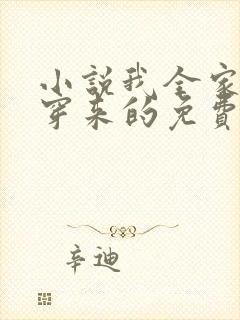 小説我全家
穿来的免費
辛迪